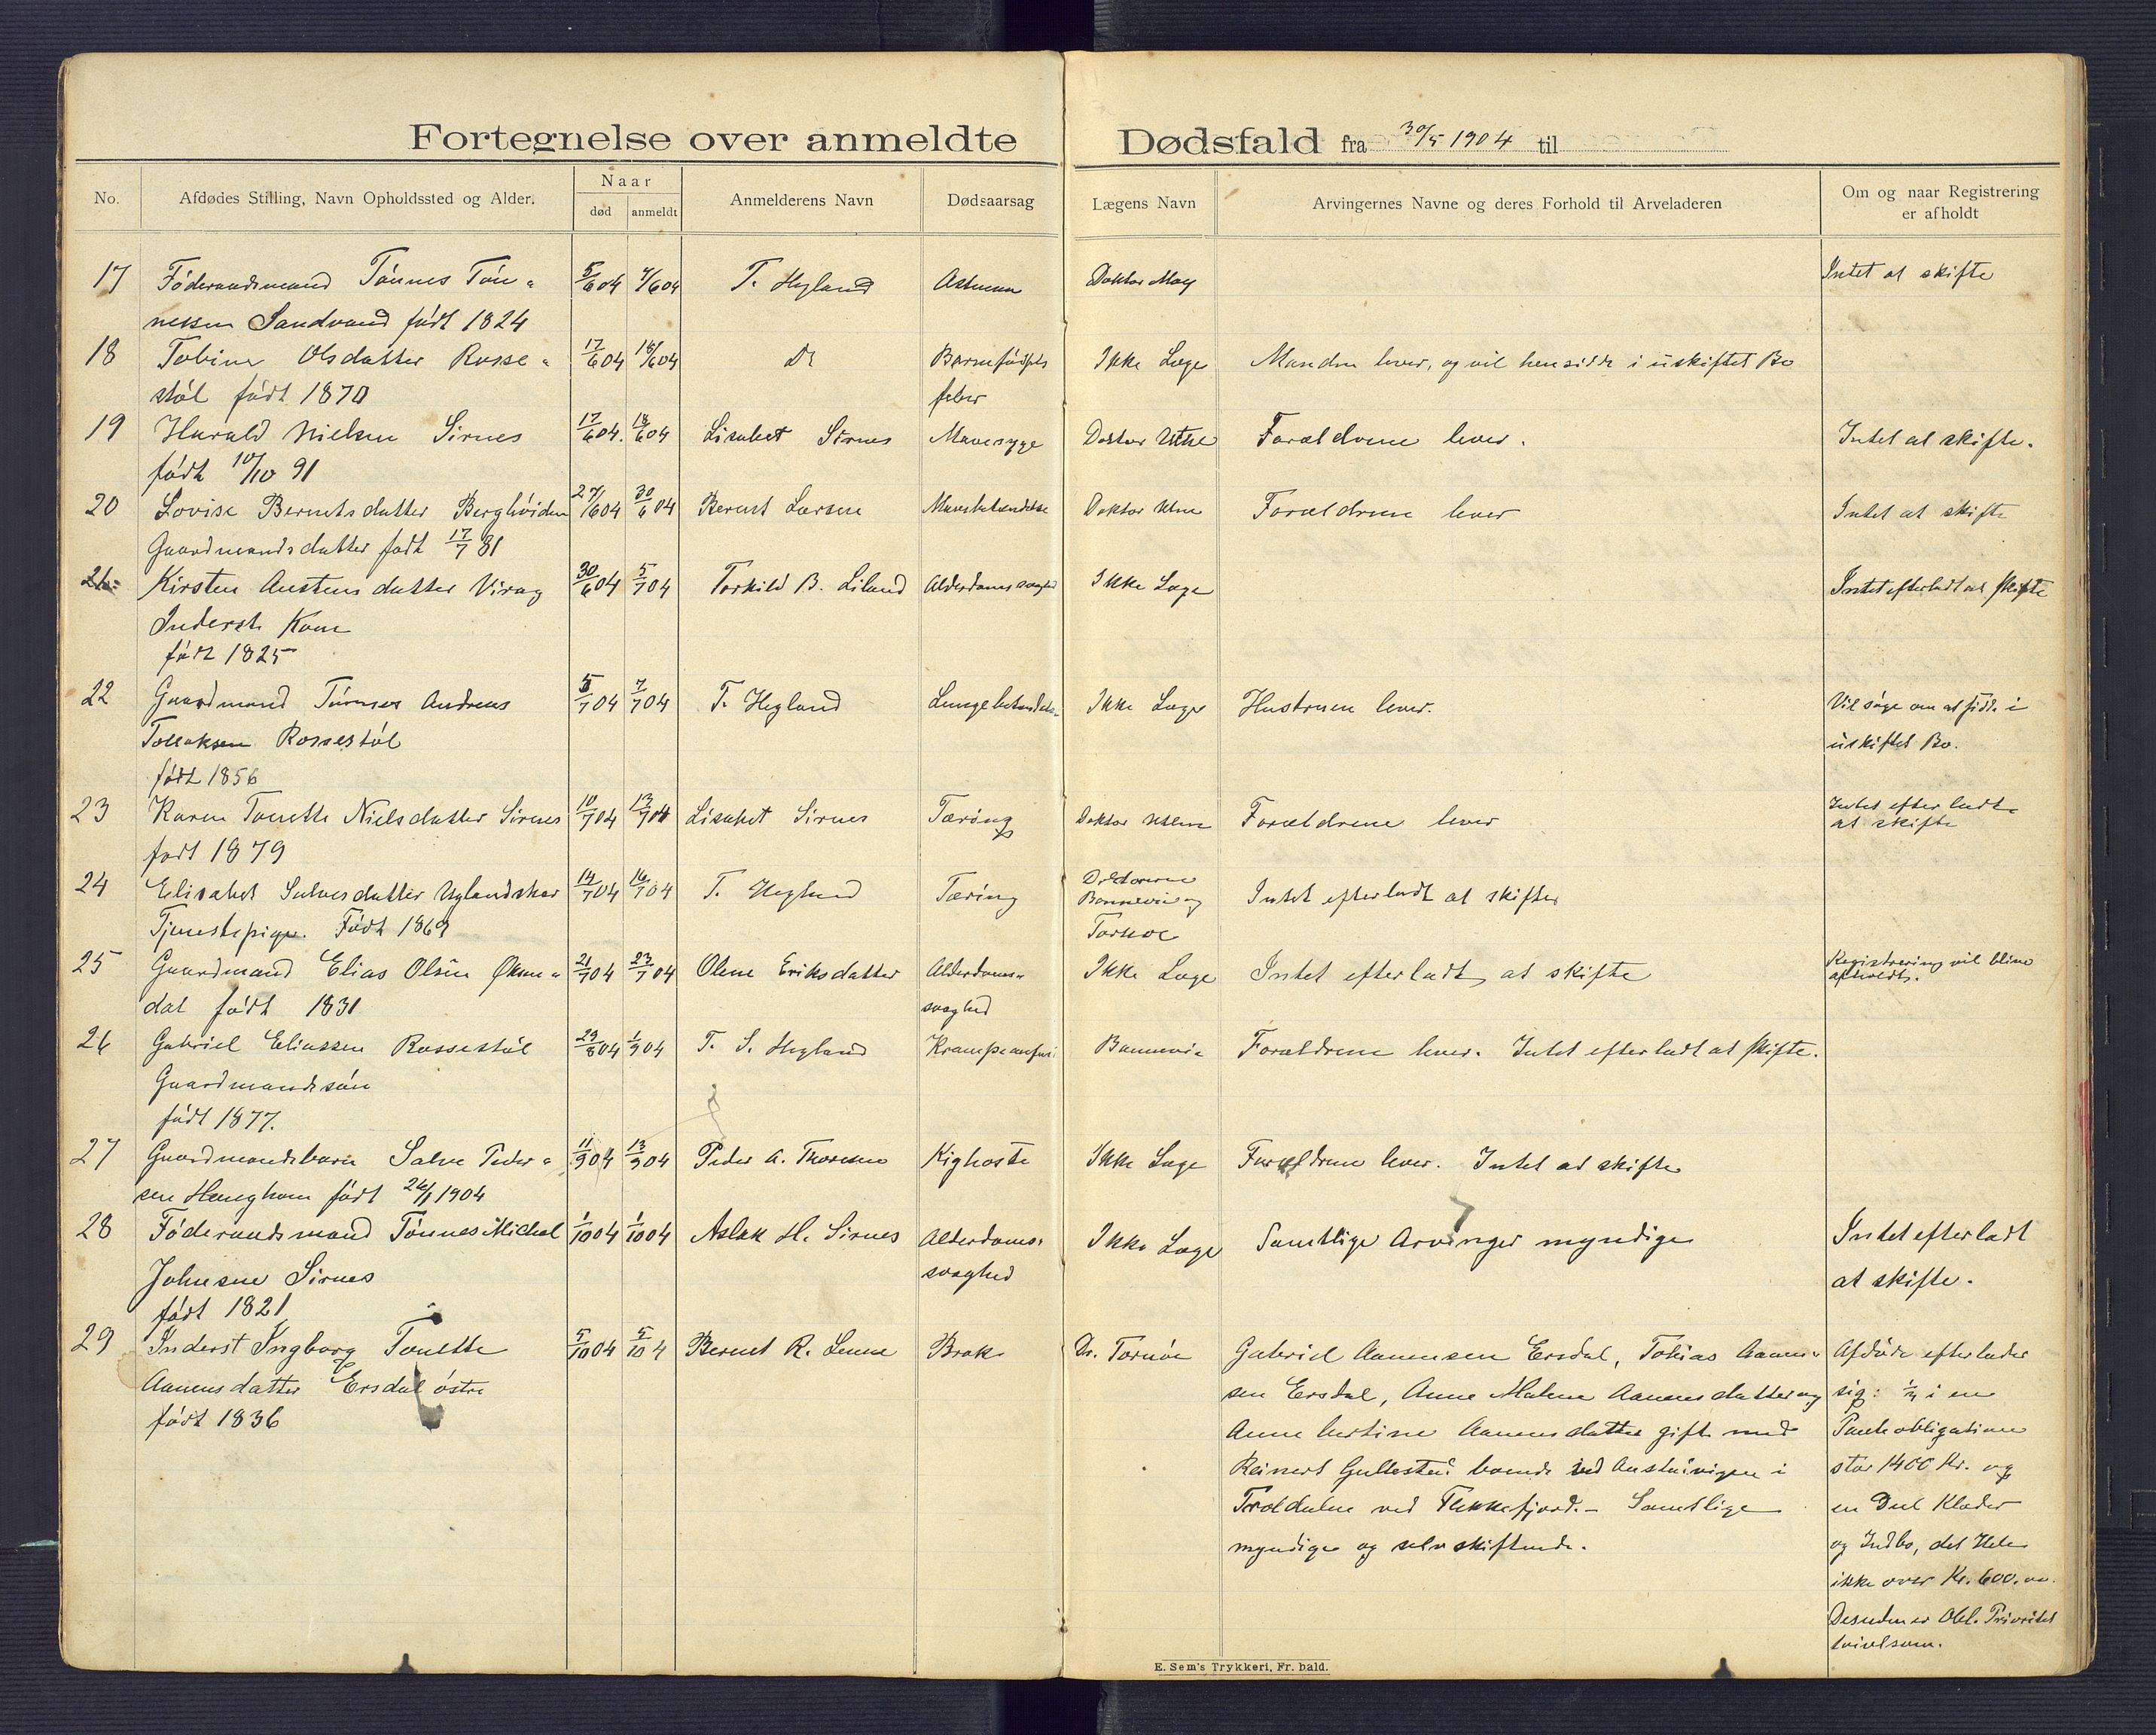 Fortegnelse over anmeldte Dødsfald fra 30/5 1904 til
No. Afdødes Stilling, Navn Opholdssted og Alder. Naar død anmeldt Anmelderens Navn Dødsaarsag Lægens Navn Arvingernes Navne og deres Forhold til Arveladeren Om og naar Registrering er afholdt
17 Föderaadsmand Tönnes Tön- 5/6 04 7/6 04 T. Hegland Astma Doktor Intet at skifte
nessen Sandvand födt 1824
18 Tobine Olsdatter Rosse- 17/6 04 18/6 04 Do Barnefödsels Ikke Læge Manden lever, og vil hensidde i uskiftet Bo
stöl födt 1870 feber
19 Harald Nielsen Sirnes 17/6 04. 18/6 04 Lisabet Sirnes Mavesyge Doktor Forældrene lever. Intet at skifte.
födt 10/10 91
20 Lovise Berntsdatter 27/6 04 30/6 04 Bernt Larsen Mavebetændelse Doktor Forældrene lever Intet at skifte
Gaardmandsdatter födt 17/7 81
21 Kirsten Austensdatter Virag 30/6 04 5/7 04 Torkild B. Liland Alderdomssvaghed Ikke Læge Intet efterladt at skifte
Inderst Kone
födt 1825
22 Gaardmand Andreas 5/7 04 7/7 04 T. Hegland Lungebetændelse Ikke Læge Hustruen lever. Vil söge om at sidde i
Tollaksen Rossestöl uskiftet Bo.
födt 1856
23 Karen Tonette Nielsdatter Sirnes 10/7 04 13/7 04 Lisabet Sirnes Tæring Doktor Forældrene lever Intet efterladt
at skifte
födt 1879
24 Elisabet Salvesdatter 14/7 04 16/7 04 T. Hegland Tæring Doktorerne
Bonnevie og Intet efterladt at skifte
Tjenestepige. Födt 1869 Tornöe
25 Gaardmand Elias Olsen Øksen- 21/7 04 23/7 04 Olene Eriksdatter Alderdoms- Ikke Læge Intet efterladt at skifte Registrering vil blive
afholdt.
dal födt 1831 svaghed
26 Gabriel Eliassen Rossestöl 29/8 04 1/9 04 T. S. Hegland Krampeanfald Bonnevie Forældrene lever. Intet efterladt at skifte.
Gaardmandssön
födt 1877.
27 Gaardmandsbarn Salve Peder- 11/9 04 13/9 04 Peder A. Thorsen Kighoste Ikke Læge Forældrene lever. Intet at skifte
sen födt 26/1 1904
28 Föderaadsmand Tönnes Mickal 1/10 04 1/10 04 Aslak H. Sirnes Alderdoms- Ikke Læge Samtlige Arvinger myndige Intet efterladt
Johnsen Sirnes svaghed at skifte.
födt 1821
29 Inderst Ingborg Tonette 5/10 04 5/10 4 Bernt R. Brok Dr. Tornöe Gabriel Aanensen Ersdal, Tobias Aanen- Afdöde efterlader
Aanensdatter Ersdal östre sen Ersdal, Anne Malene Aanensdatter og sig: 1/4 i en
födt 1836 Anne Aanensdatter gift med Panteobligation
Reinert boende ved i stor 1400 Kr. og
ved Flekkefjord. - Samtlige en Del Klæder
myndige og selvskiftende. og Indbo, det Hele
ikke over Kr. 600.00.
Desuden er Obl. Prioritet
tvivlsom.
E. Sem's Trykkeri, Fr. hald.